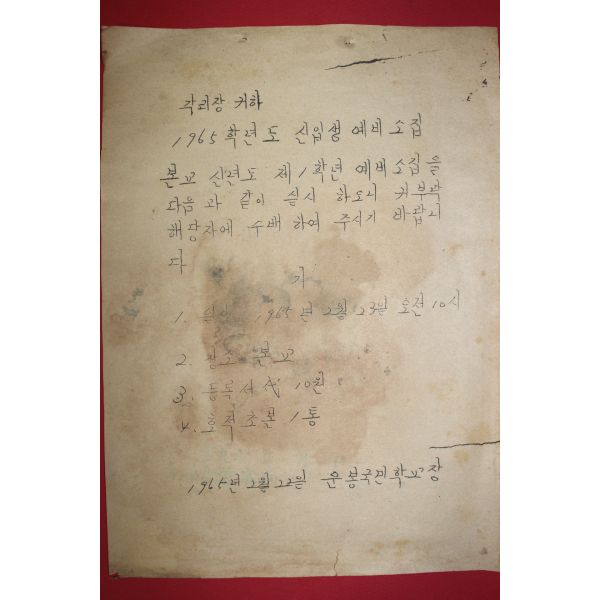 각리장 귀하
1965학년도 신입생 예비소집
본교 신년도 제1학년 예비소집을
다음과 같이 실시 하오니 귀부락
해당자에 수배 하여 주시기 바랍니
다
기
1. 일시 1965년 2월 23일 오전 10시
2. 장소 본교
3. 등록서代 10원
4. 호적초본 1통
1965년 2월 22일 운봉국민학교장